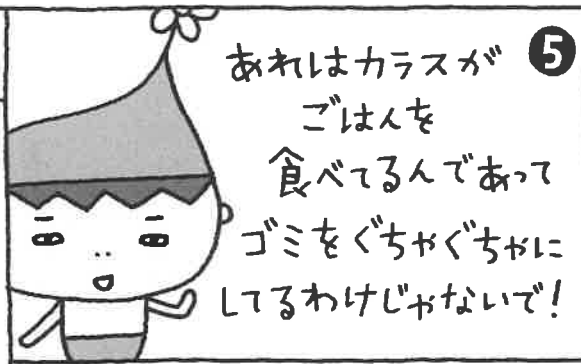 5
あれはカラスが
ごはんを
食べてるんであって
ゴミをぐちゃぐちゃに
してるわけじゃないで!